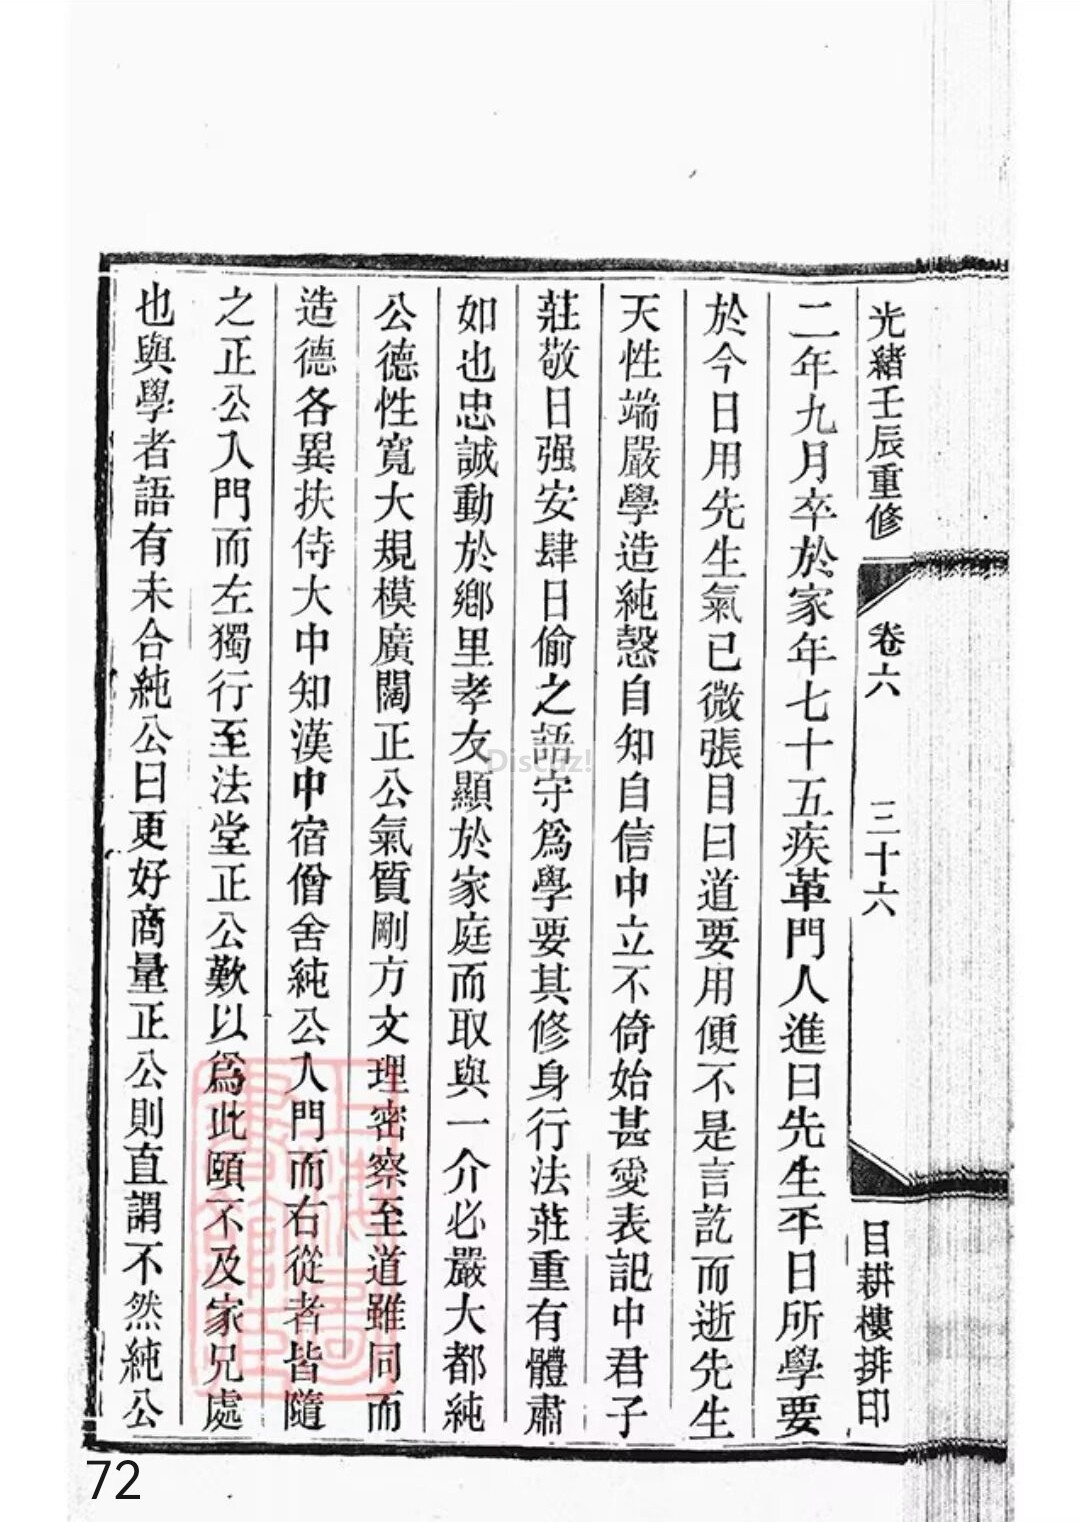 光緒壬辰重修
卷六
三十六
目耕樓排印
二年九月卒於家年七十五疾革門人進曰先生平日所學要
於今日用先生氣已微張目曰道要用便不是言訖而逝先生
天性端嚴學造純慤自知自信中立不倚始甚愛表記中君子
莊敬日强安肆日偷之語守為學要其修身行法莊重有體肅
如也忠誠動於鄉里孝友顯於家庭而取與一介必嚴大都純
公德性寬大規模廣闊正公氣質剛方文理密察至道雖同而
造德各異扶侍大中知漢中宿僧舍純公入門而右從者皆隨
之正公入門而左獨行至法堂正公歎以為此頤不及家兄處
也與學者語有未合純公曰更好商量正公則直謂不然純公
Discuz!
72